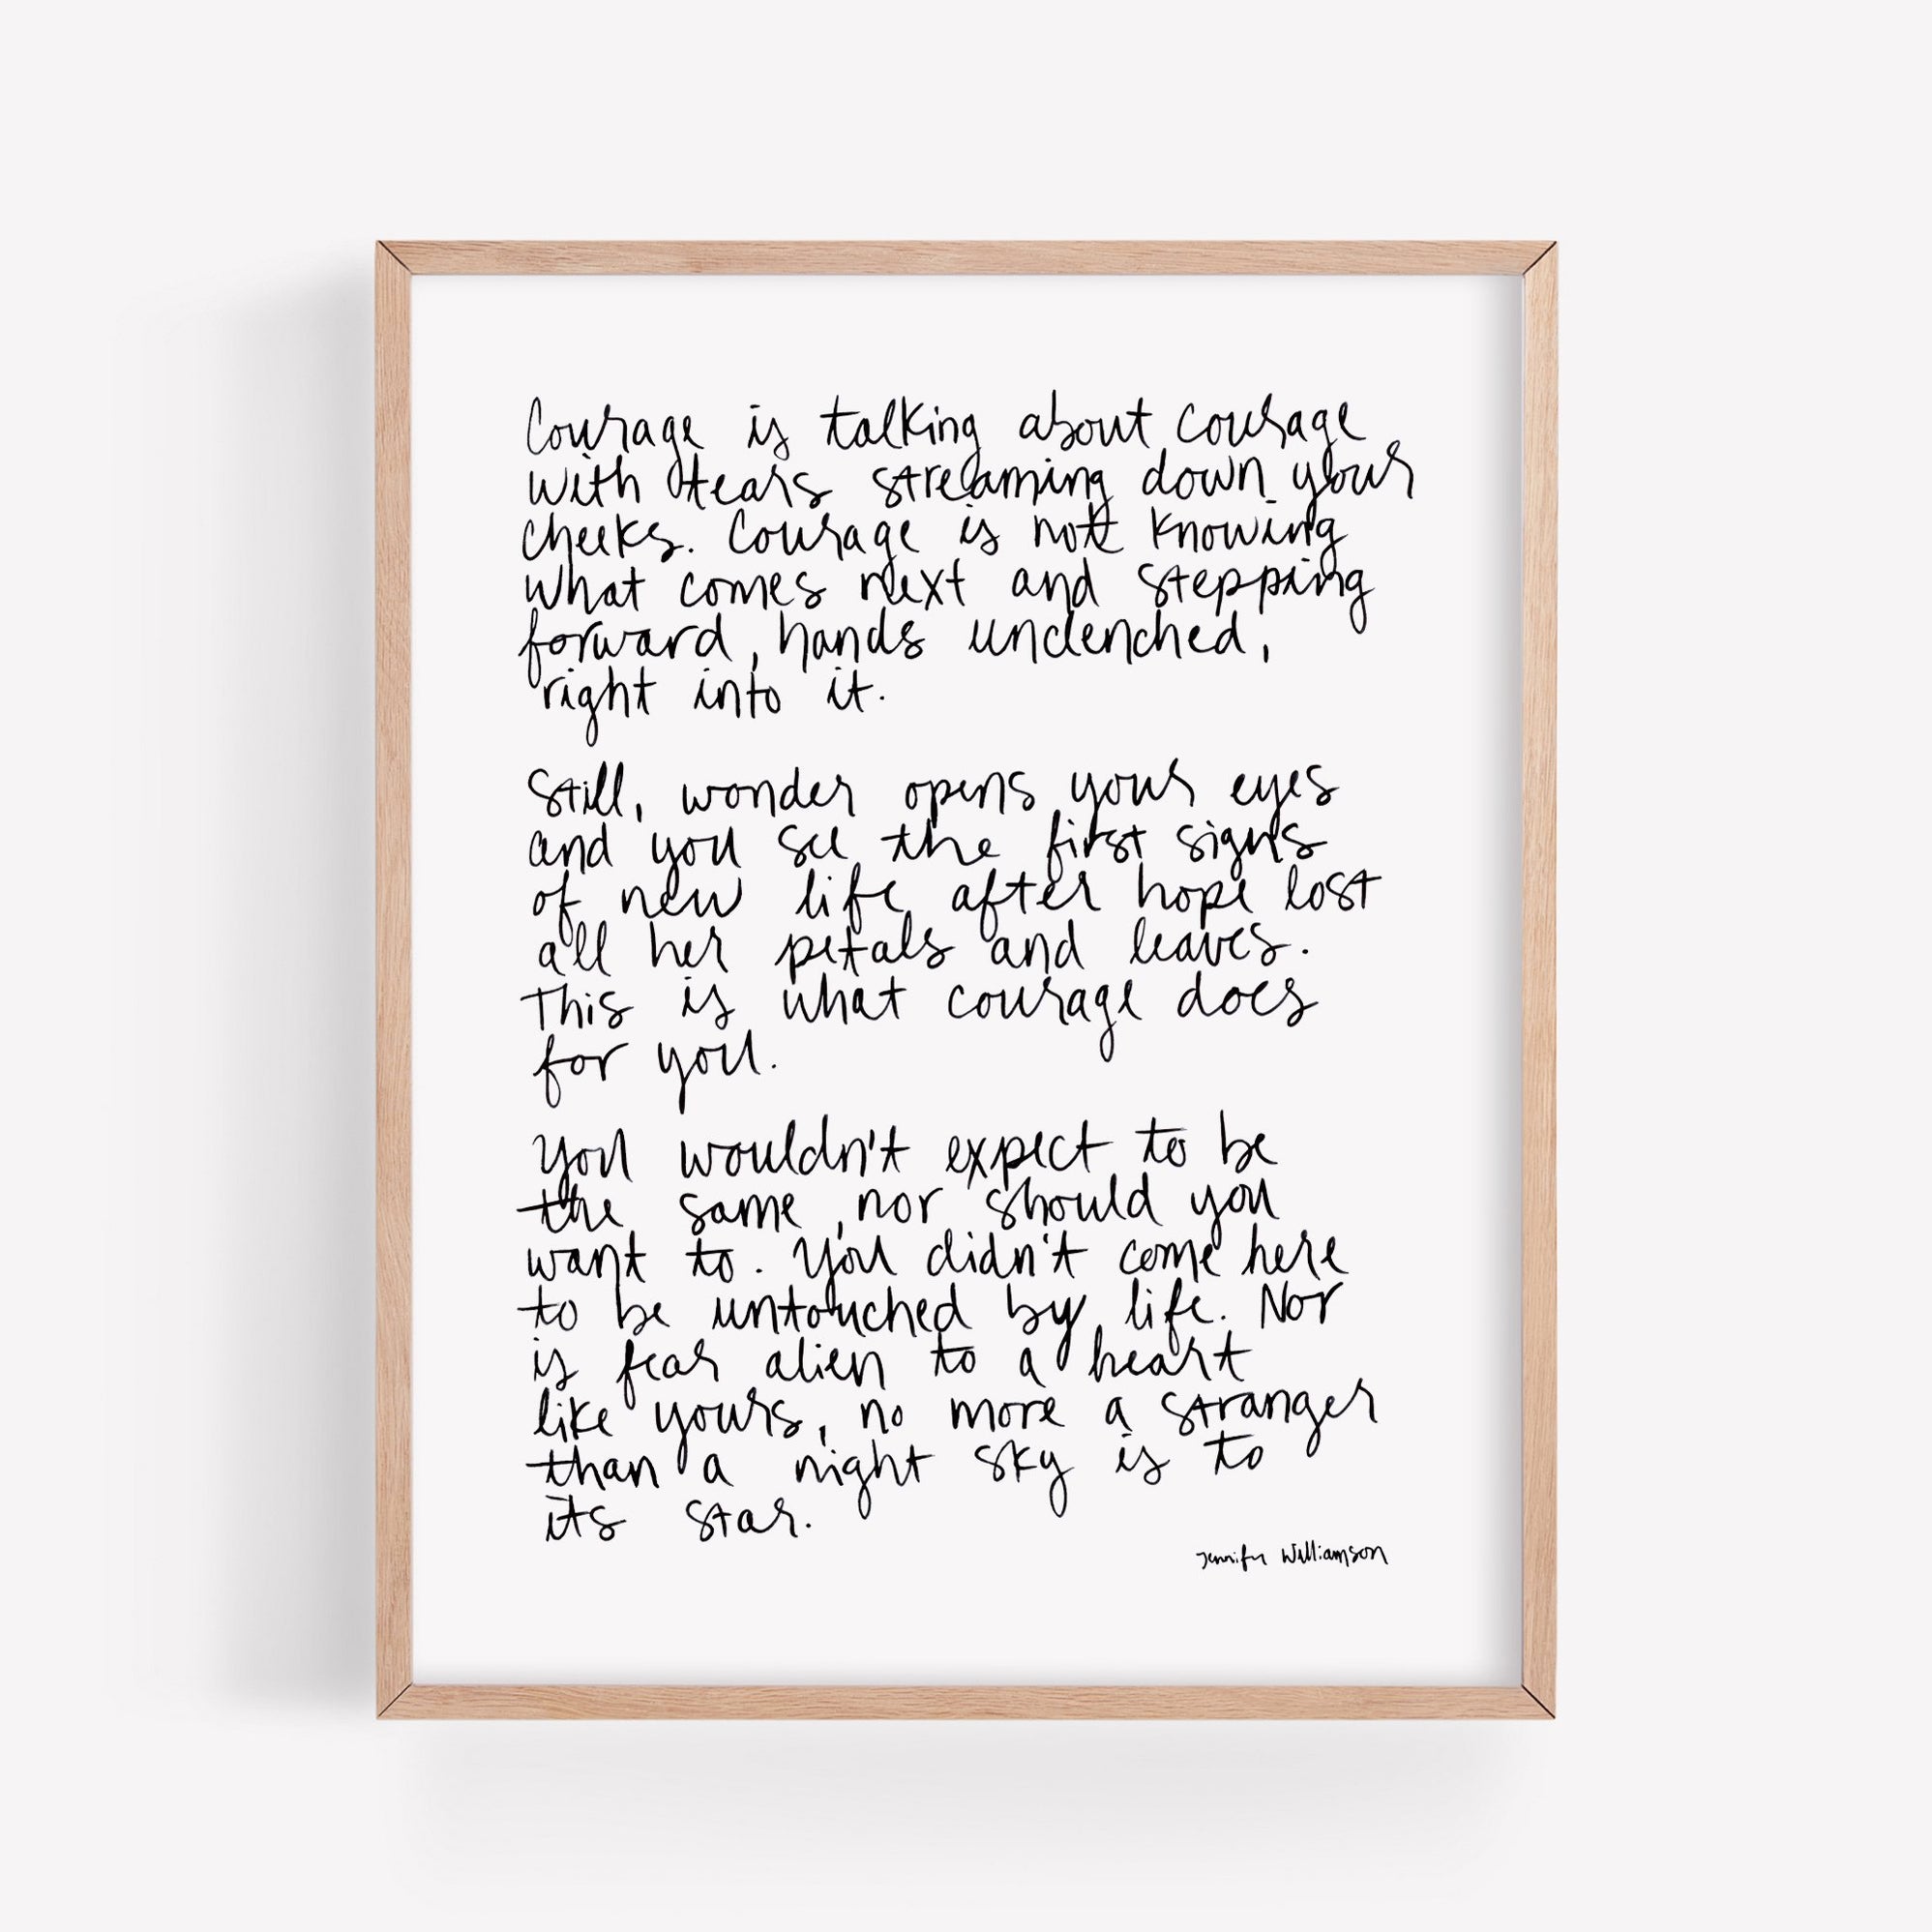 Courage is talking about courage
with tears streaming down your
cheeks. Courage is not knowing
what comes next and stepping
forward, hands unclenched,
right into it.
Still, wonder opens your eyes
and you see the first signs
of new life after hope lost
all her petals and leaves.
This is what courage does
for you.
You wouldn't expect to be
the same, nor should you
want to. You didn't come here
to be untouched by life. Nor
is fear alien to a heart
like yours, no more a stranger
than a night sky is to
its star.
Jennifer Williamson